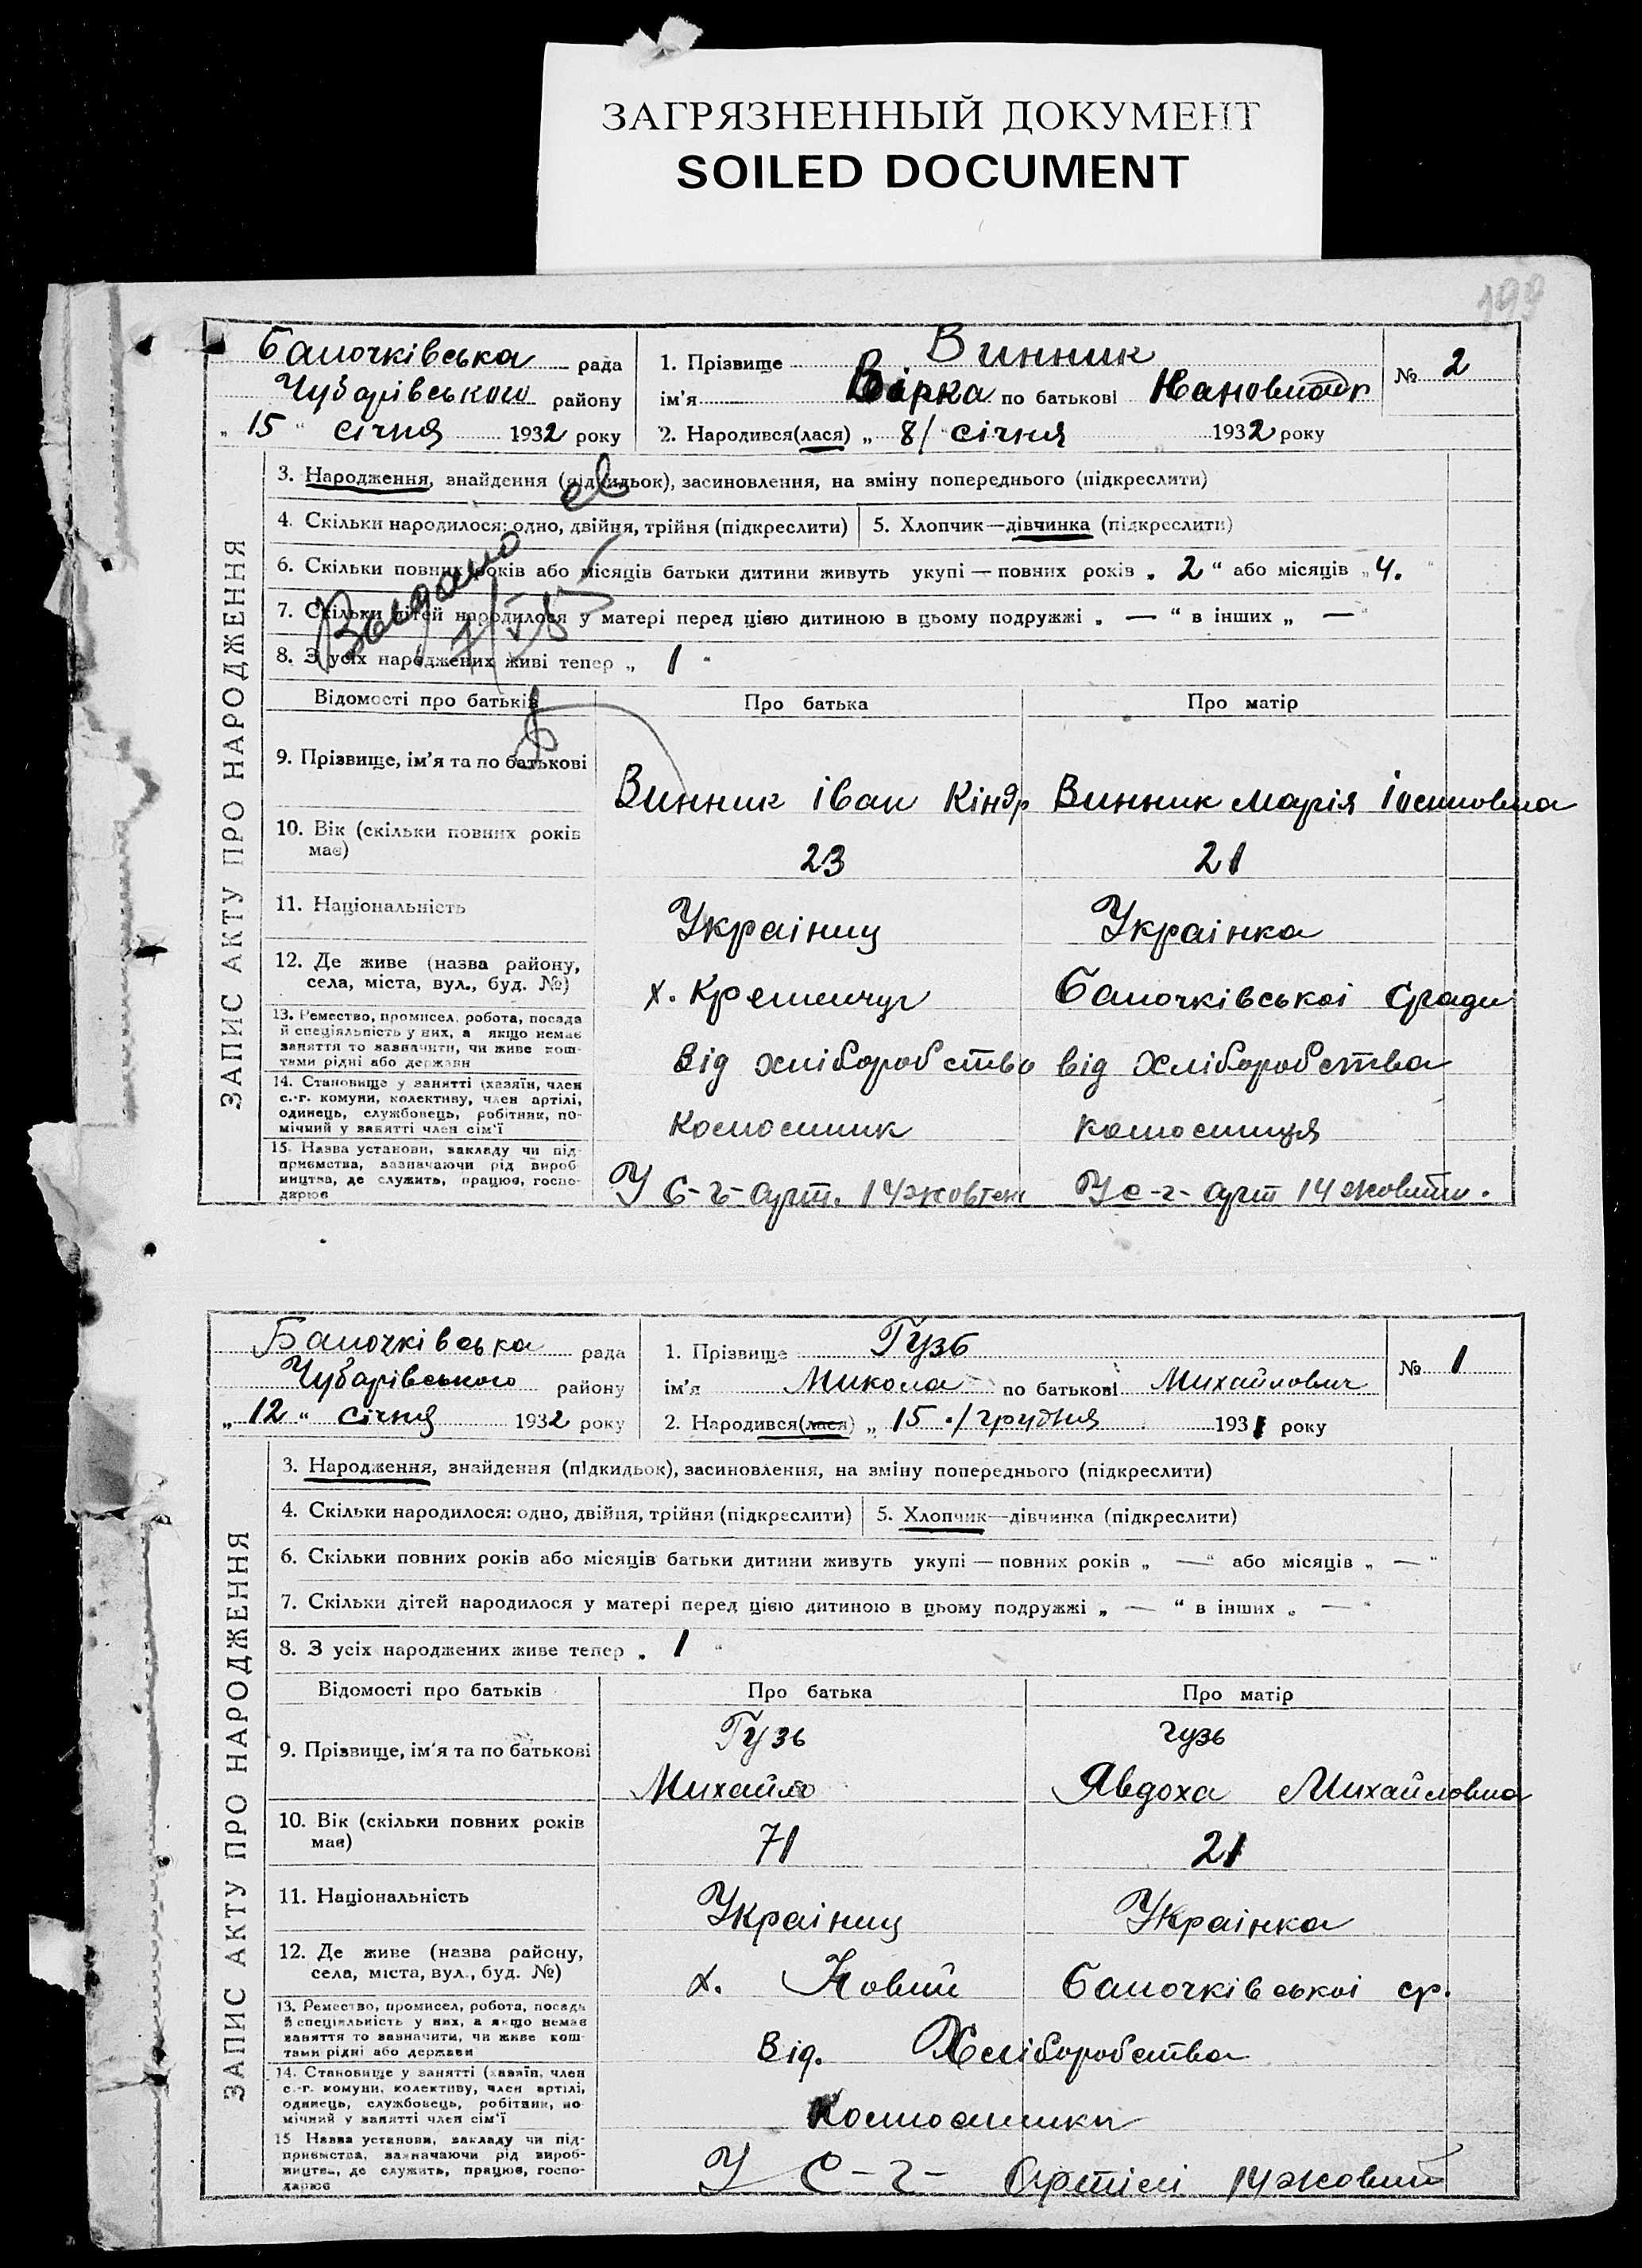 ЗАГРЯЗНЕННЫЙ ДОКУМЕНТ
SOILED DOCUMENT
199
ЗАПИС АКТУ ПРО НАРОДЖЕННЯ
Балочківська рада
Чубарівського району
„ 15 " січня 1932 року
1. Прізвище Винник
ім'я Вірка по батькові
2. Народився(лася) „ 8/ " січня 1932 року
№ 2
3. Народження, знайдення (підкидьок), засиновлення, на зміну попереднього (підкреслити)
4. Скільки народилося: одно, двійня, трійня (підкреслити) 5. Хлопчик—дівчинка (підкреслити)
6. Скільки повних років або місяців батьки дитини живуть укупі — повних років „ 2 " або місяців „ 4. "
7. Скільки дітей народилося у матері перед цією дитиною в цьому подружжі „ — " в інших „ — "
8. З усіх народжених живі тепер „ 1 "
Відомості про батьків Про батька Про матір
9. Прізвище, ім'я та по батькові
Винник іван Кіндр Винник марія іосиповна
10. Вік (скільки повних років має)
23 21
11. Національність
Украіниц Украінка
12. Де живе (назва району, села, міста, вул., буд. №)
х. Кременчуг Балочківськоі Сради
13. Ремество, промисел, робота, посада й спеціяльність у них, а якщо немає заняття то зазначити, чи живе коштами рідні або держави
від хліборобства від Хліборобства
14. Становище у занятті (хазяїн, член с.-г. комуни, колективу, член артілі, одинець, службовець, робітник, помічний у занятті член сім'ї
Колосник колосниця
15. Назва установи, закладу чи підприємства, зазначаючи рід виробництва, де служить, працює, господарює
У С-г-арт. 14 жовтен У с-г-арт 14 жовтн.
Видано
ЗАПИС АКТУ ПРО НАРОДЖЕННЯ
Балочківська рада
Чубарівського району
„ 12 " січня 1932 року
1. Прізвище Гузь
ім'я Микола по батькові Михайлович
2. Народився(лася) „ 15 "/ грудня 1931 року
№ 1
3. Народження, знайдення (підкидьок), засиновлення, на зміну попереднього (підкреслити)
4. Скільки народилося: одно, двійня, трійня (підкреслити) 5. Хлопчик—дівчинка (підкреслити)
6. Скільки повних років або місяців батьки дитини живуть укупі — повних років „ — " або місяців „ — "
7. Скільки дітей народилося у матері перед цією дитиною в цьому подружжі „ — " в інших „ — "
8. З усіх народжених живе тепер „ 1 "
Відомості про батьків Про батька Про матір
9. Прізвище, ім'я та по батькові
Гузь гузь
Михайло Явдоха Михайловна
10. Вік (скільки повних років має)
71 21
11. Національність
Украіниц Украінка
12. Де живе (назва району, села, міста, вул., буд. №)
х. Новий Балочківськоі ср.
13. Ремество, промисел, робота, посада й спеціяльність у них, а якщо немає заняття то зазначити, чи живе коштами рідні або держави
Від. Хліборобства
14. Становище у занятті (хазяїн, член с.-г. комуни, колективу, член артілі, одинець, службовець, робітник, помічний у занятті член сім'ї
15 Назва установи, закладу чи підприємства, зазначаючи рід виробництва, де служить, працює, господарює
У С-г- Артілі 14 жовтн